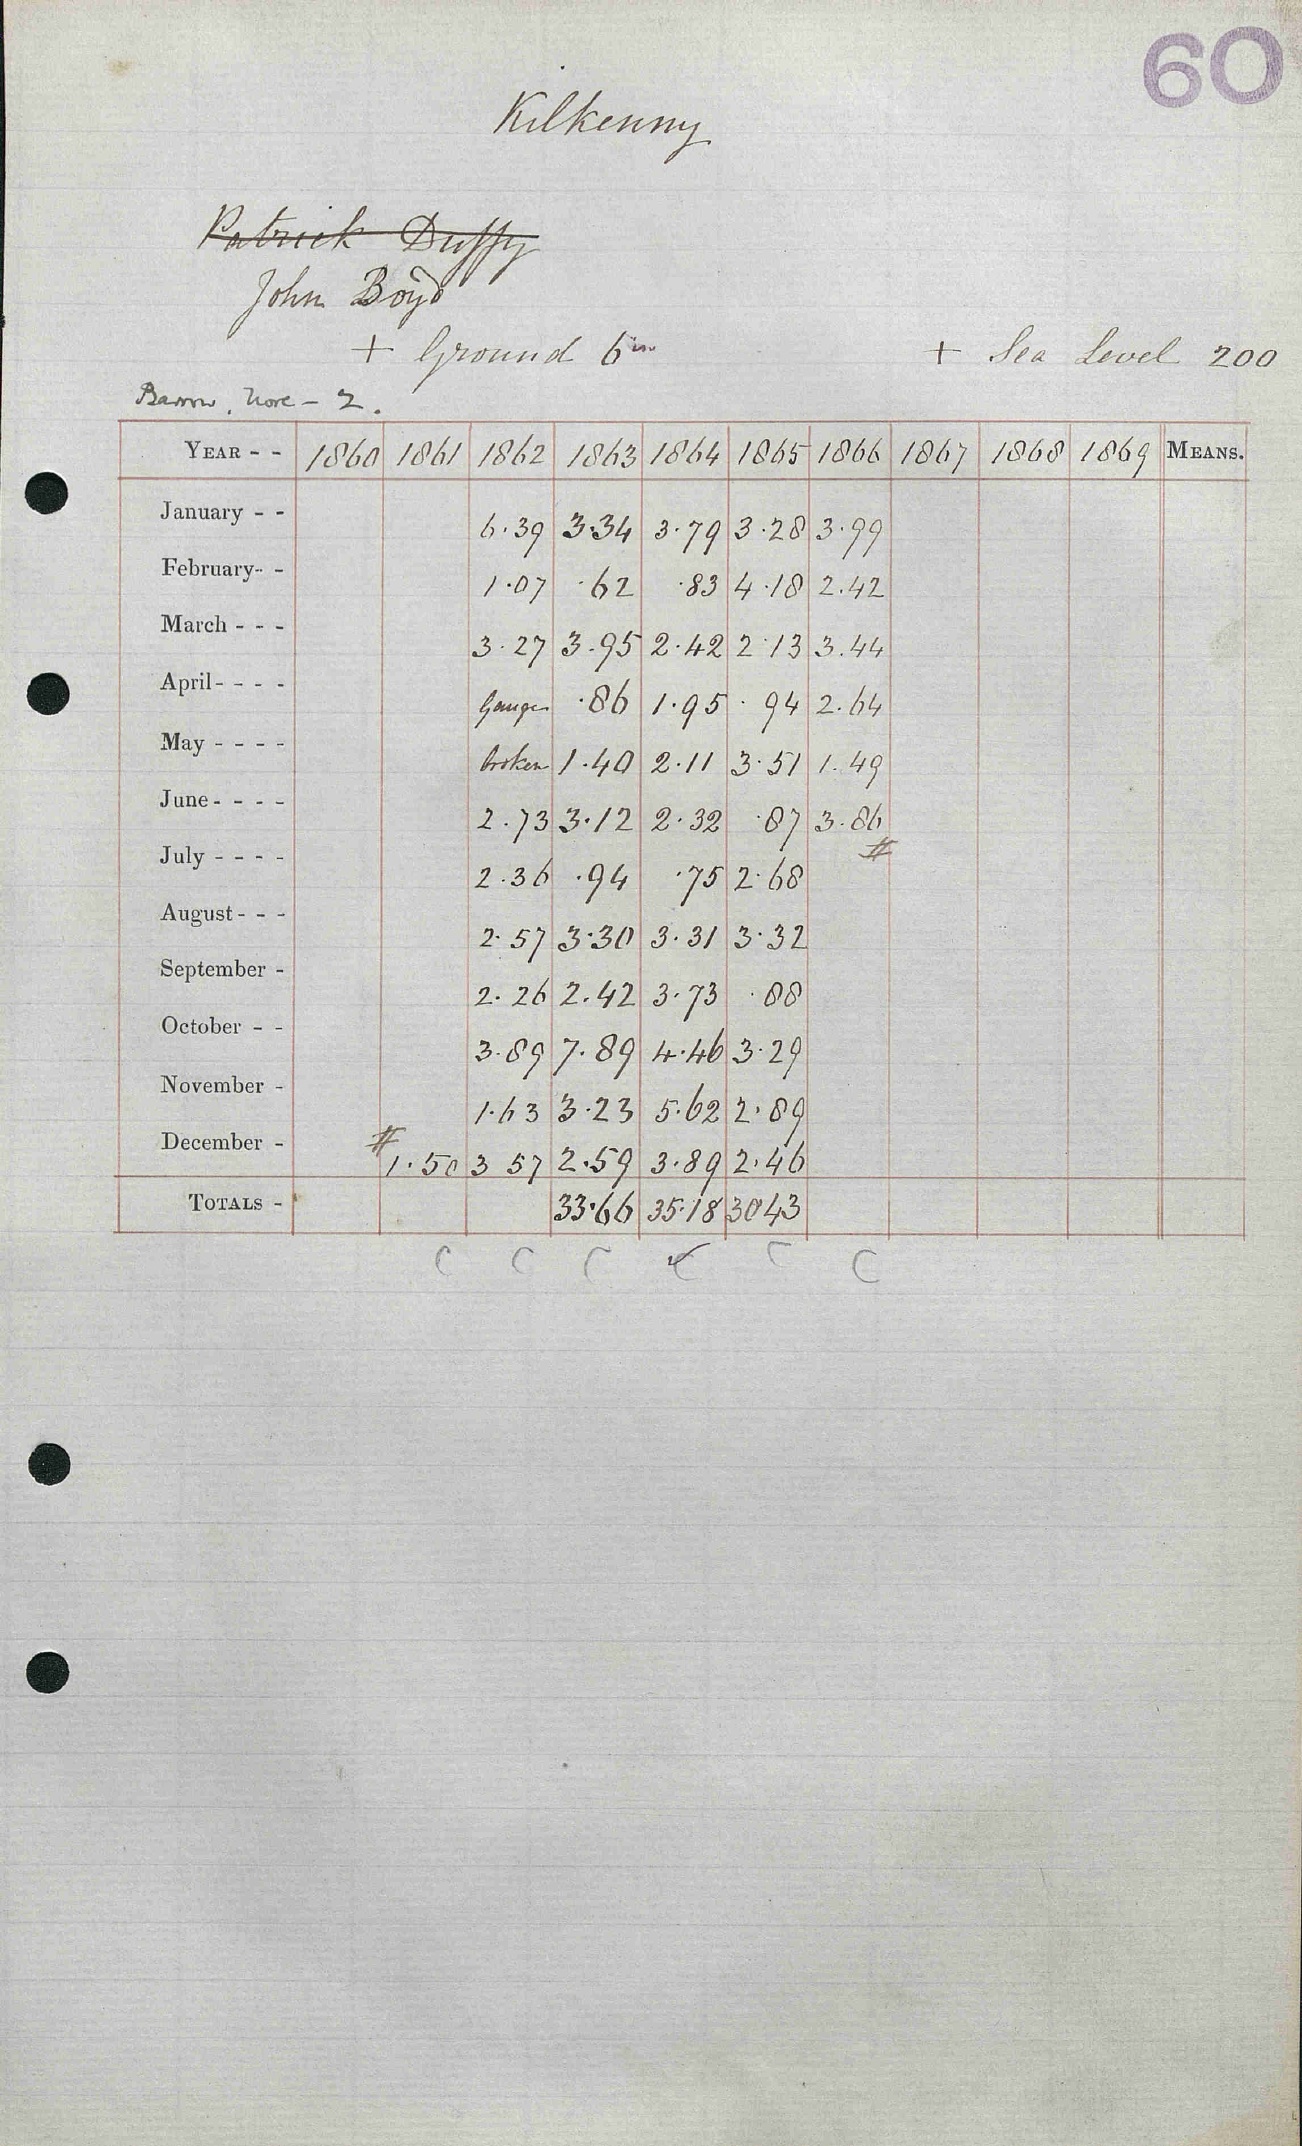 60
Kilkenny
Patrick Duffy
John Boyd
+ Ground 6in
+ Sea Level 200
Barrow, Nore - 2.
YEAR - - 1860 1861 1862 1863 1864 1865 1866 1867 1868 1869 MEANS.
January - - 6.39 3.34 3.79 3.28 3.99
February - - 1.07 .62 .83 4.18 2.42
March - - - 3.27 3.95 2.42 2.13 3.44
April - - - - Gauge .86 1.95 .94 2.64
May - - - - broken 1.40 2.11 3.51 1.49
June - - - - 2.73 3.12 2.32 .87 3.86
July - - - - 2.36 .94 .75 2.68 #
August - - - 2.57 3.30 3.31 3.32
September - 2.26 2.42 3.73 .88
October - - 3.89 7.89 4.46 3.29
November - 1.63 3.23 5.62 2.89
December - # 1.50 3 57 2.59 3.89 2.46
TOTALS - 33.66 35.18 3043
C C C C C C